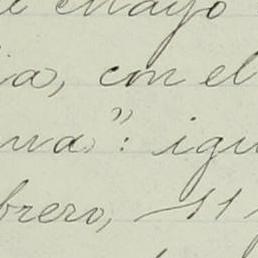 e Mayo
ia, con el
wa": igu
brero, 11